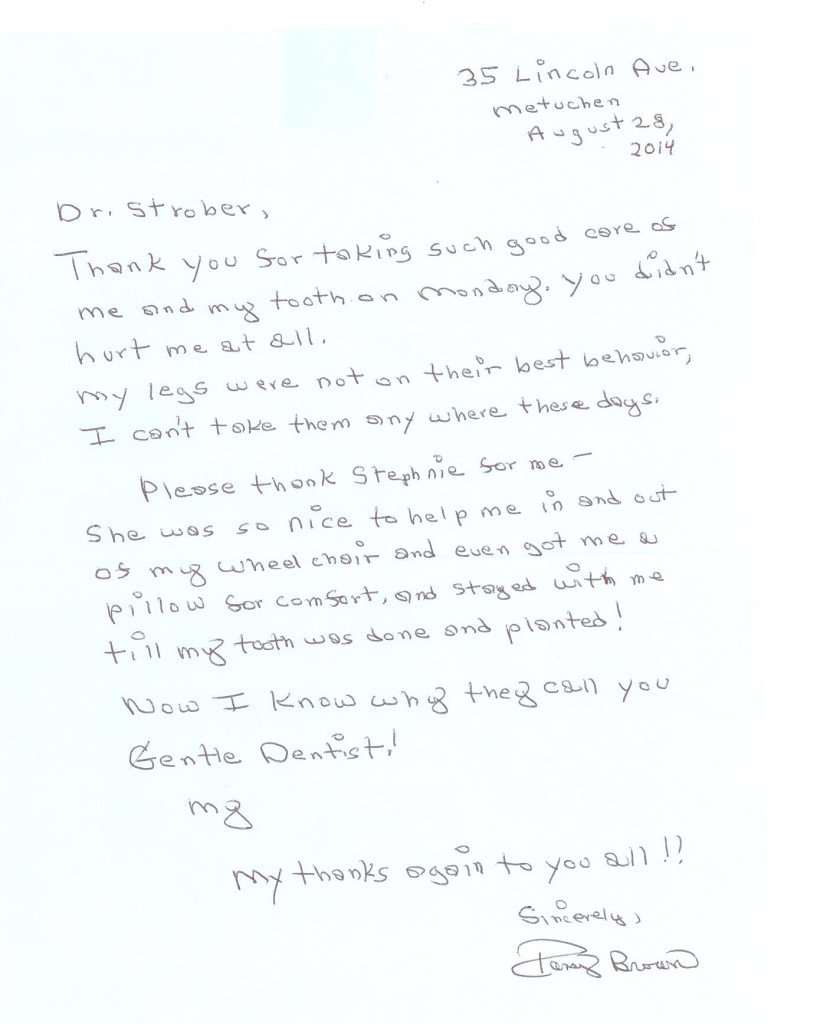 35 Lincoln Ave.
Metuchen
August 28,
2014
Dr. Strober,
Thank you for taking such good care of
me and my tooth on Monday. You didn't
hurt me at all.
My legs were not on their best behavior,
I can't take them any where these days.
Please thank Stephnie for me –
She was so nice to help me in and out
of my wheel chair and even got me a
pillow for comfort, and stayed with me
till my tooth was done and planted!
Now I know why they call you
Gentle Dentist!
my
My thanks again to you all!!
Sincerely,
Brown